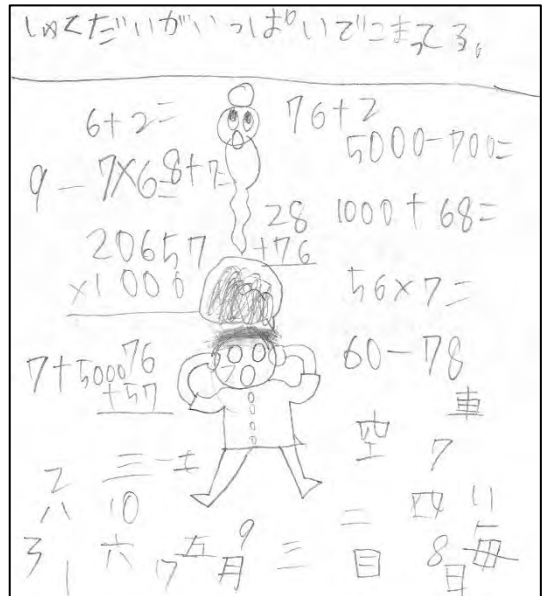 しゅくだいがいっぱいでこまってる。
6+2=
76+2
5000-700=
9-7×6=
8+7=
28
+76
1000+68=
20657
×1000
56×7=
7+5000
76
+57
60-78
車
空
7
三
一
土
二
四
川
八
10
毎
3
1
六
17
五
9
月
三
目
8
日